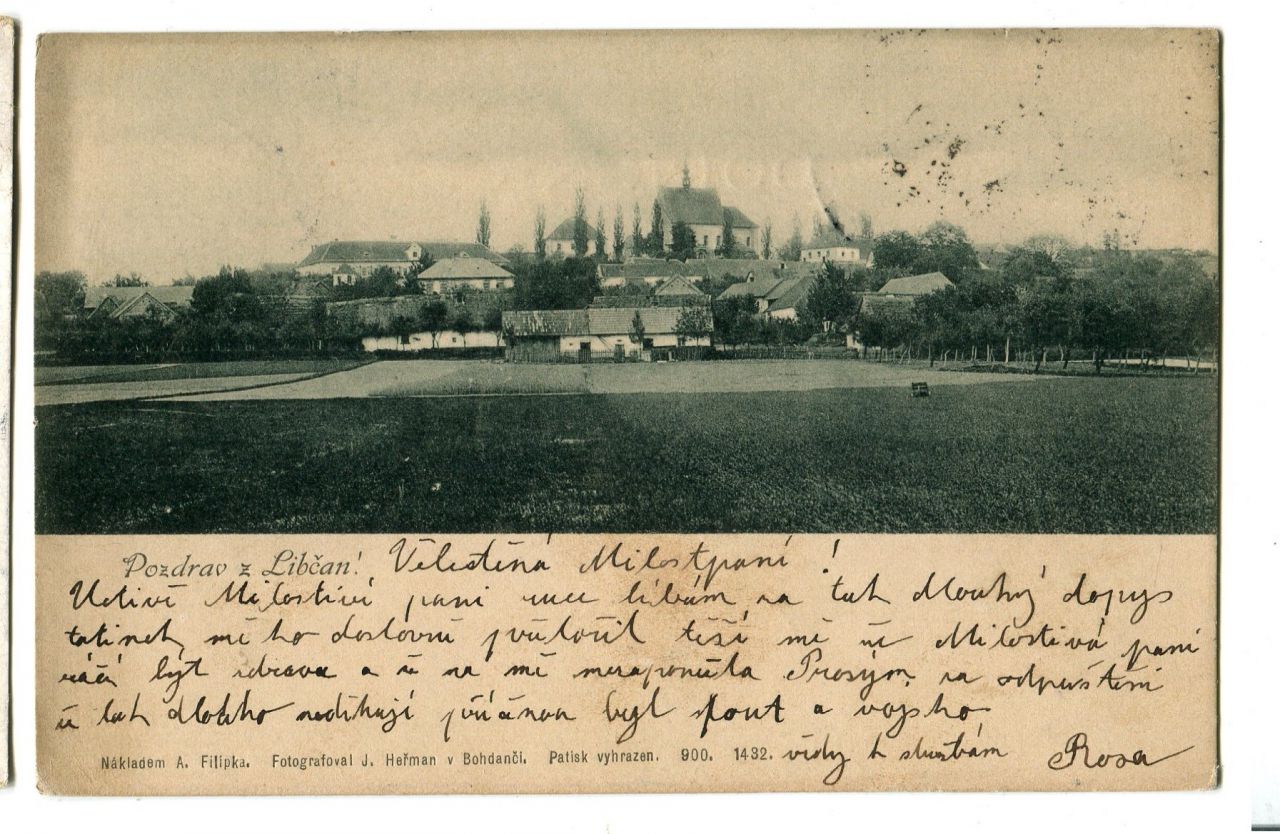 Pozdrav z Libčan! Velectěná Milostpaní!
Uctivě Milostivé paní ruce líbám, za tak dlouhý dopys
tatinek mě ho doslovně přeložil těší mě že Milostivá paní
ráčí byt zdráva a že na mě nezaponěla Prosým za odpuštění
že tak dlouho neděkuji příčinou byl pout a vojsko
Nákladem A. Filipka. Fotografoval J. Heřman v Bohdanči. Patisk vyhrazen. 900. 1432. vždy k službám Rosa